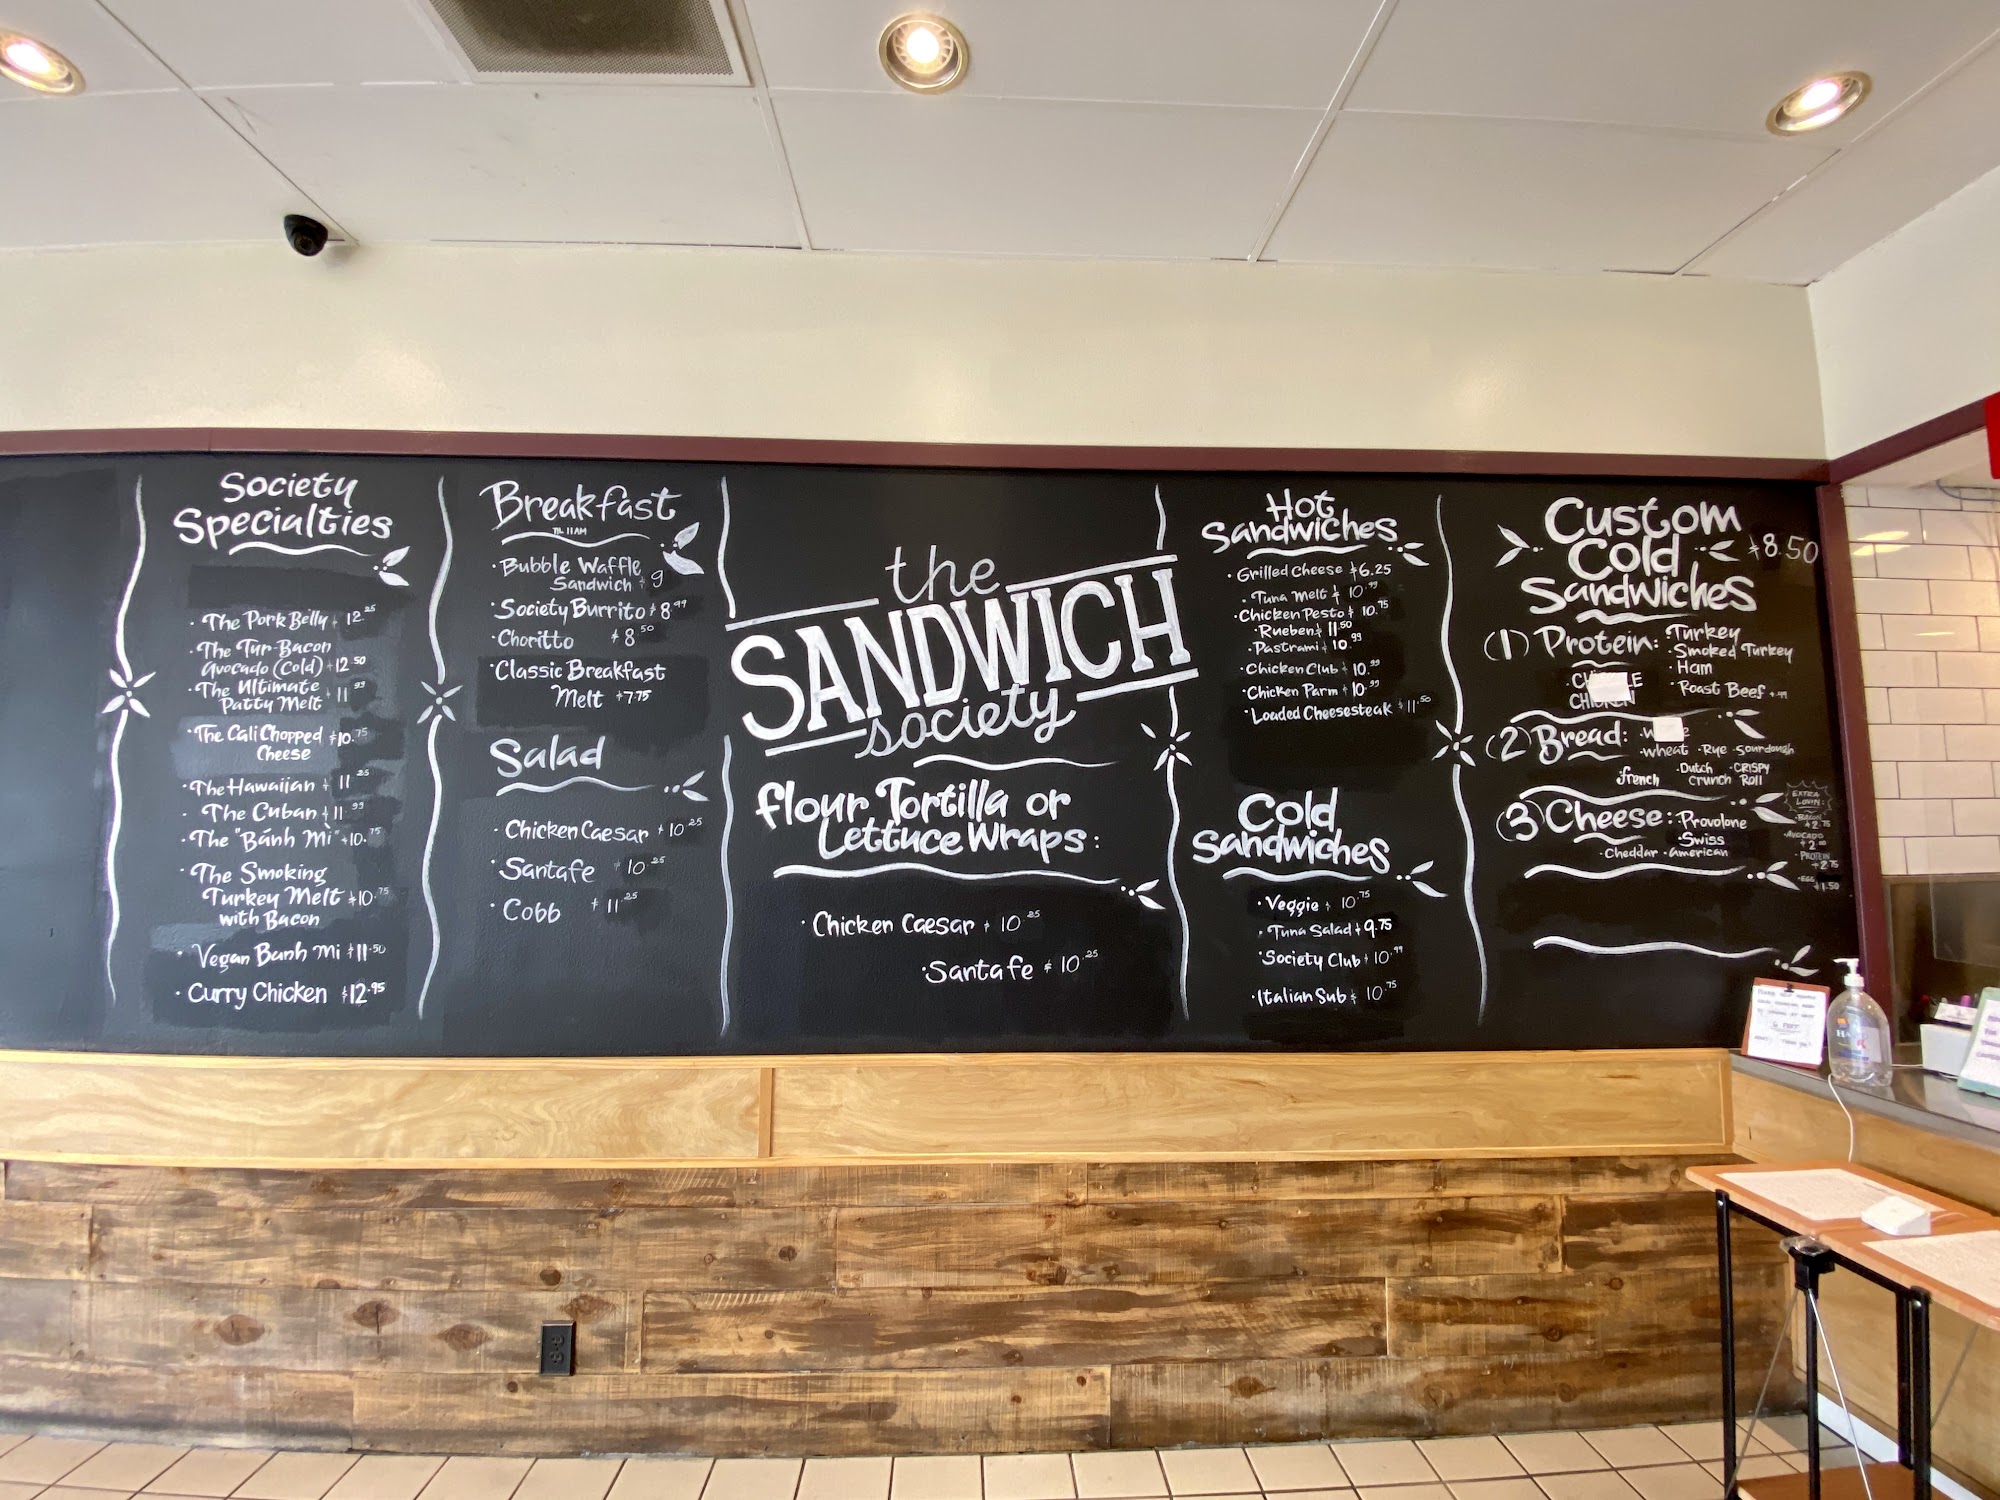 Society
Specialties
· The Pork Belly $12.25
· The Tur-Bacon
Avocado (Cold) $12.50
· The Ultimate
Patty Melt $11.99
· The Cali Chopped $10.75
Cheese
· The Hawaiian $11.25
· The Cuban $11.99
· The "Bánh Mì" $10.75
· The Smoking
Turkey Melt $10.75
with Bacon
· Vegan Banh Mi $11.50
· Curry Chicken $12.95
Breakfast
TIL 11AM
· Bubble Waffle
Sandwich $9
· Society Burrito $8.99
· Choritto $8.50
· Classic Breakfast
Melt $7.75
Salad
· Chicken Caesar $10.25
· Santafe $10.25
· Cobb $11.25
the
SANDWICH
society
flour Tortilla or
Lettuce Wraps:
· Chicken Caesar $10.25
· Santafe $10.25
Hot
Sandwiches
· Grilled Cheese $6.25
· Tuna Melt $10.99
· Chicken Pesto $10.75
· Rueben $11.50
· Pastrami $10.99
· Chicken Club $10.99
· Chicken Parm $10.99
· Loaded Cheesesteak $11.50
Cold
Sandwiches
· Veggie $10.75
· Tuna Salad $9.75
· Society Club $10.99
· Italian Sub $10.75
Custom
Cold $8.50
Sandwiches
(1) Protein: · Turkey
· Smoked Turkey
· Ham
· Roast Beef +.99
CHICKEN
(2) Bread:
· Wheat · Rye · Sourdough
· french · Dutch Crunch · CRISPY ROLL
(3) Cheese: · Provolone
· Swiss
· Cheddar · American
EXTRA
LOVIN:
· BACON
+2.75
· AVOCADO
+2.00
· PROTEIN
+2.75
· EGG
$1.50
6 FEET